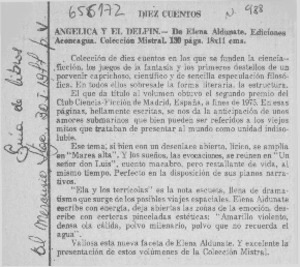 655172
DIEZ CUENTOS
N. 988
ANGELICA Y EL DELFIN.— De Elena Aldunate. Ediciones
Aconcagua. Colección Mistral. 130 págs. 18x11 cms.
Colección de diez cuentos en los que se funden la ciencia-
ficción, los juegos de la fantasía y los primeros destellos de un
porvenir caprichoso, científico y de sencilla especulación filosó-
fica. En todos ellos sobresale la forma literaria, la estructura.
El que da título al volumen obtuvo el segundo premio del
Club Ciencia-Ficción de Madrid, España, a fines de 1975. En esas
páginas, bellamente escritas, se nos da la anticipación de unos
amores submarinos que bien pueden ser referidos a los viejos
mitos que trataban de presentar al mundo como unidad indiso-
luble.
Ese tema, si bien con un desenlace abierto, lírico, se amplía
en "Mares alta". Y los sueños, las evocaciones, se reúnen en "Un
señor don Luis", cuento macabro, pero restallante de vida, al
mismo tiempo. Perfecto en la disposición de sus planos narra-
tivos.
"Ela y los terrícolas" es la nota escueta, llena de drama-
tismo que surge de los posibles viajes espaciales. Elena Aldunate
escribe con energía, deja abiertas las zonas de la emoción, des-
cribe con certeras pinceladas estéticas: "Amarillo violento,
densa ola cálida, polvo milenario, polvo que no recuerda el
agua".
Valiosa esta nueva faceta de Elena Aldunate. Y excelente la
presentación de estos volúmenes de la Colección Mistral.
Guía de libros
El Mercurio Stgo.